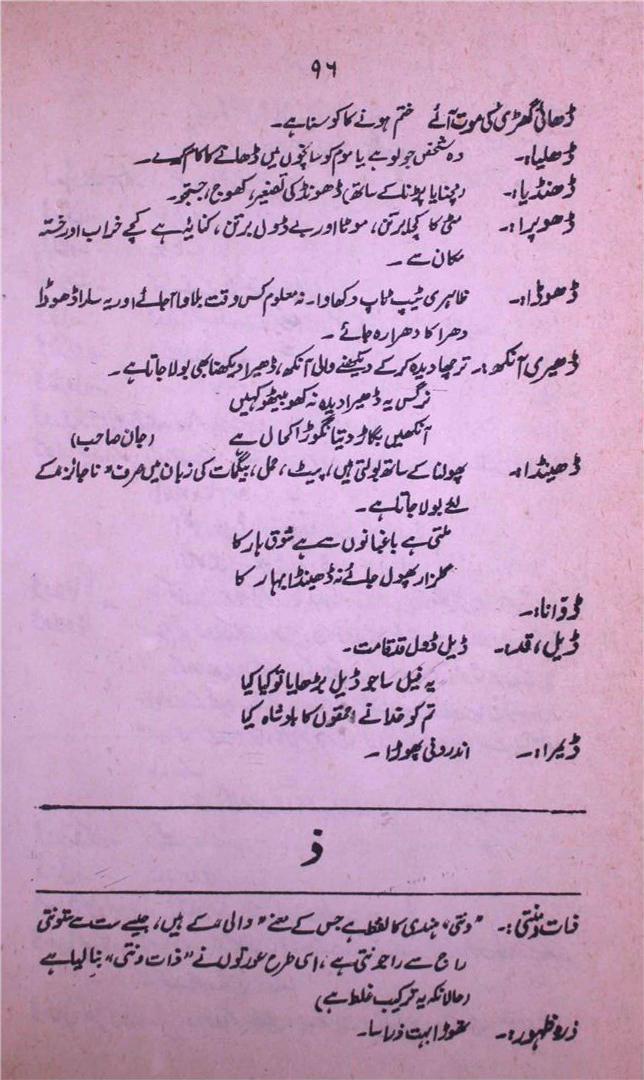 ۹۶
ڈھائی گھڑی کی موت آئے ختم ہونے کا کوسنا ہے۔
ڈھلیا:۔ وہ شخص جو لوہے یا موم کو سانچوں میں ڈھالنے کا کام کرے۔
ڈھنڈیا:۔ (مچنا یا پڑنا کے ساتھ) ڈھونڈ کی تصغیر، کھوج، جستجو۔
ڈھوپرا:۔ مٹی کا کچا برتن، موٹا اور بے ڈول برتن، کنایۃً ہے کچے خراب اور خستہ
مکان سے۔
ڈھوڈا:۔ ظاہری ٹیپ ٹاپ دکھاوا۔ نہ معلوم کس وقت بلاوا آجائے اور یہ سارا ڈھوڈا
دھرا کا دھرا رہ جائے۔
ڈھیری آنکھ:۔ ترچھا دیدہ کر کے دیکھنے والی آنکھ، ڈھیرا دیکھنا بھی بولا جاتا ہے۔
نرگس یہ ڈھیرا دیدہ نہ کھو بیٹھو کہیں
آنکھیں بگاڑ دیتا نگوڑا کمال ہے (جان صاحب)
ڈھینڈا:۔ پھولنا کے ساتھ بولتی ہیں، پیٹ، حمل، بیگمات کی زبان میں صرف "ناجائز" کے
لئے بولا جاتا ہے۔
ملتی ہے باغبانوں سے بے شوق ہار کا
گلزار پھول جائے نہ ڈھینڈا بہار کا
ڈوّانا:۔
ڈیل، قد:۔ ڈیل ڈول قد قامت۔
یہ فیل سا جو ڈیل بڑھایا تو کیا کیا
تم کو خدا نے احمقوں کا بادشاہ کیا
ڈیمرا:۔ اندرونی پھوڑا۔
ذ
ذات ونتی:۔ "ونتی" ہندی کا لفظ ہے جس کے معنے "والی" کے ہیں، جیسے ست سے ستونتی
راج سے راجونتی ہے، اسی طرح عورتوں نے "ذات ونتی" بنا لیا ہے
(حالانکہ یہ ترکیب غلط ہے)
ذرہ ظہور:۔ تھوڑا بہت ذرا سا۔